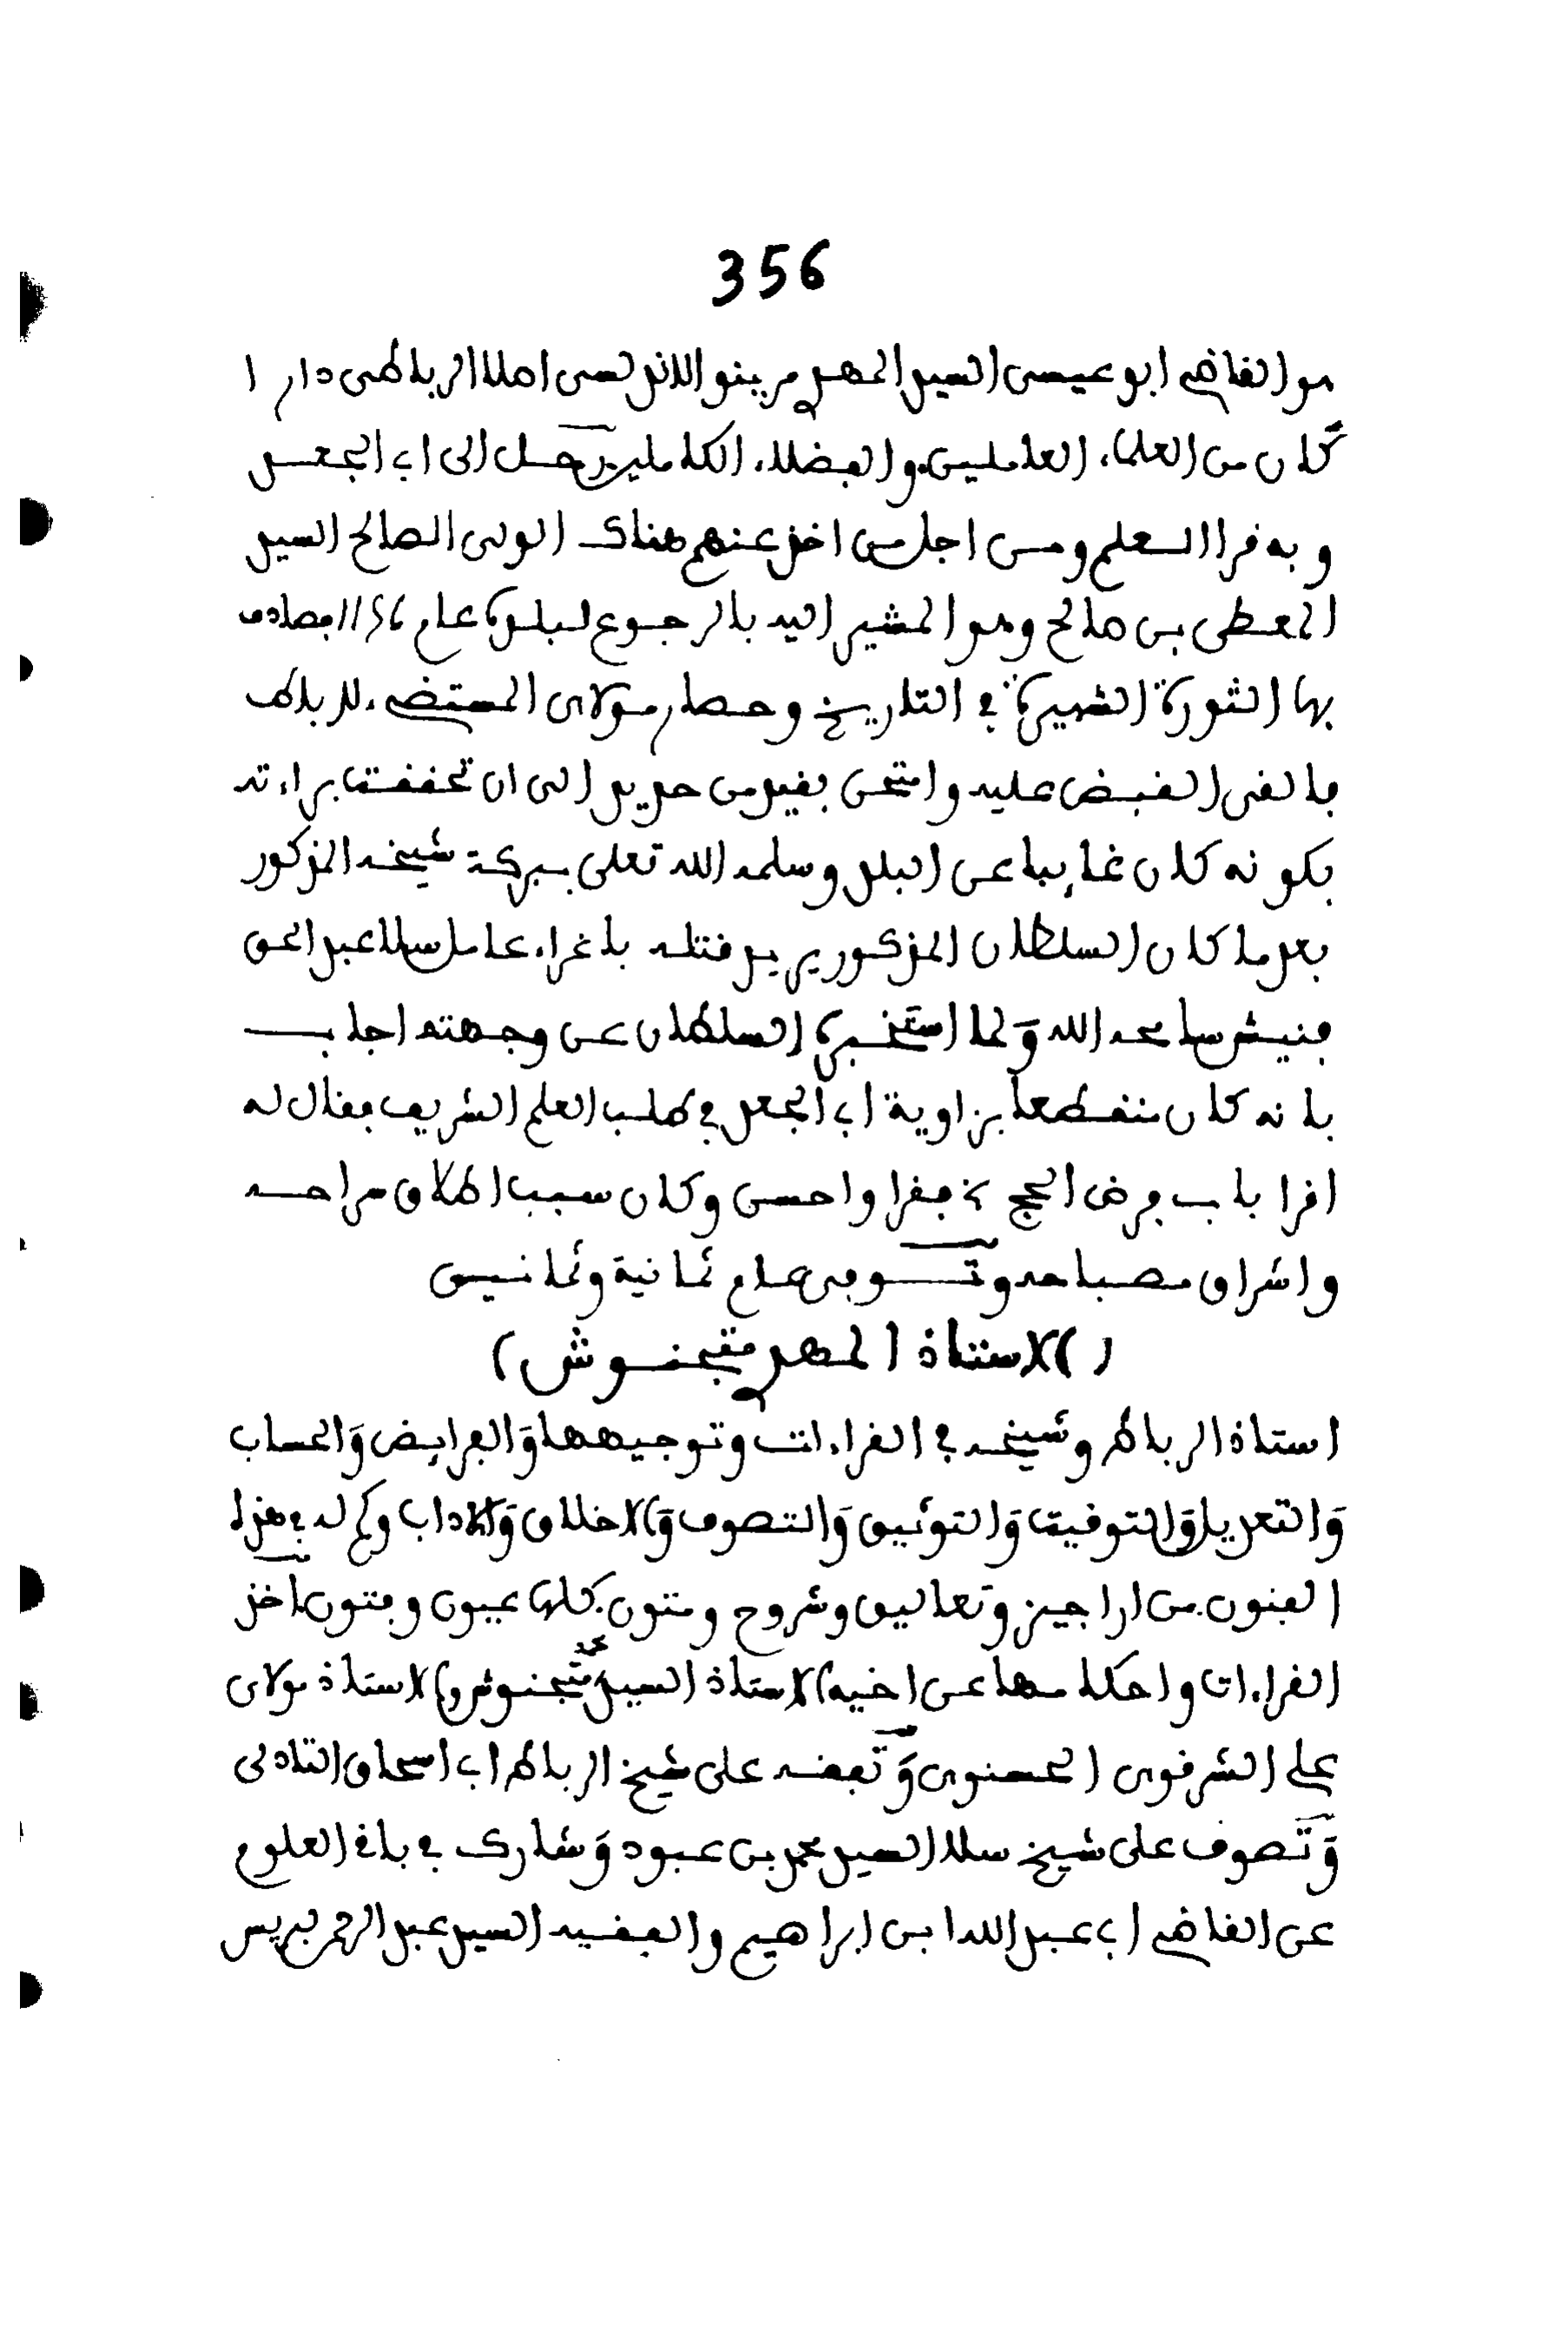 356
هو القاضى ابو عيسى السيد المهدى مرينو الاندلسى اصلا الرباطى دارا
كان من العلماء العاملين والفضلاء الكاملين رحل الى ابى الجعد
وبه قرا العلم ومن اجل من اخذ عنهم هناك الولى الصالح السيد
المعطى بن صالح وهو المشير اليه بالرجوع لبلده عام 1156 فصادف
بها الثورة الشهيرة فى التاريخ وحصار مولاى المستضىء للرباط
فالقى القبض عليه وامتحن بقيد من حديد الى ان تحققت براءته
بكونه كان غايبا عن البلد وسلمه الله تعلى ببركة شيخه المذكور
بعد ما كان السلطان المذكور يريد قتله باغراء عامل سلا عبد الحق
فنيش سامحه الله ولما استخبره السلطان عن وجهته اجاب
بانه كان منقطعا بزاوية ابى الجعد فى طلب العلم الشريف فقال له
اقرا باب فرض الحج فقرا واحسن وكان سبب اطلاق سراحه
واشراق مصباحه وتوفى عام ثمانية وثمانين
(الاستاذ المهدى متجنوش)
استاذ الرباط وشيخه فى القراءات وتوجيهها والفرايض والحساب
والتعديل والتوقيت والتوثيق والتصوف والاخلاق والاداب وكم له فى هذا
الفنون من اراجيز وتعاليق وشروح ومتون كلها عيون وفنون اخذ
القراءات واحكامها عن اخيه الاستاذ السيد محمد متجنوش والاستاذ مولاى
على الشرفوى الحسنوى وتفقه على شيخ الرباط ابى اسحاق التادلى
وتصوف على شيخ سلا السيد محمد بن عبود وشارك فى باقى العلوم
عن القاضى ابى عبد الله ابن ابراهيم والفقيه السيد عبد الرحمن لبريس